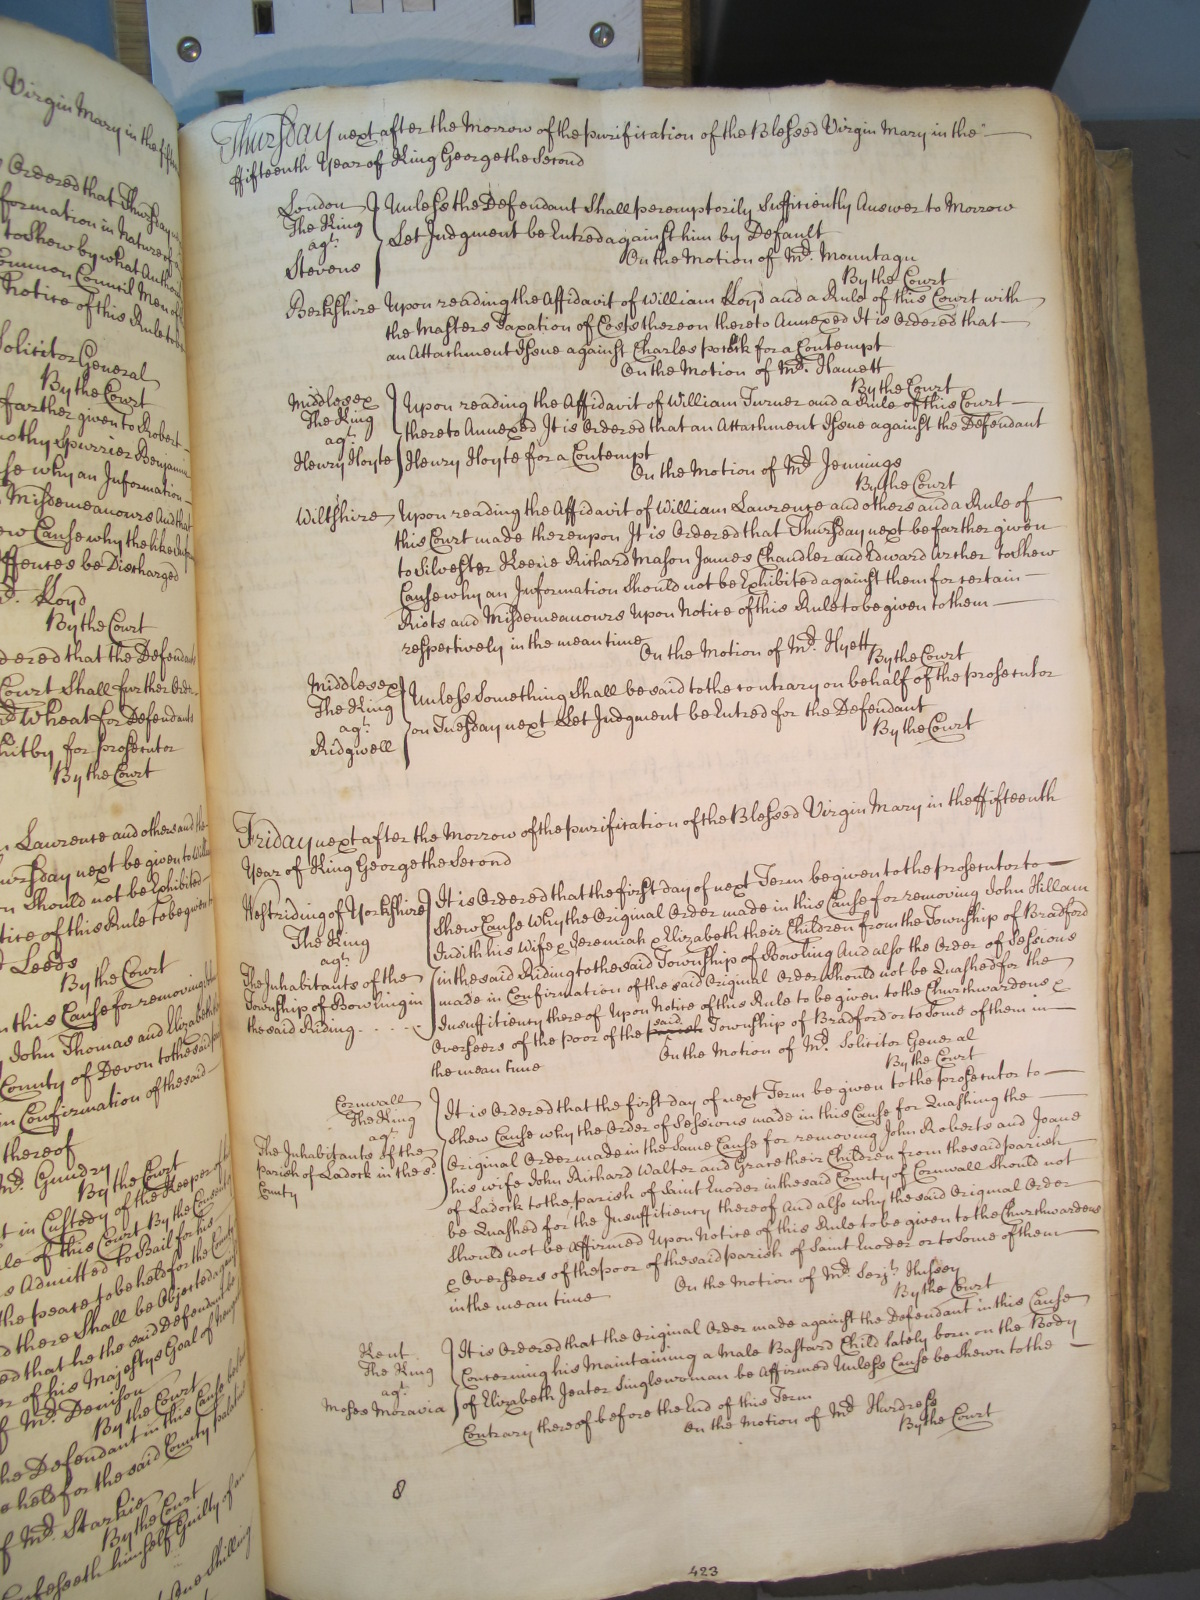 Virgin Mary in the fifte
Ordered that Thursday
formation in Nature of
to Shew by what Author
Common Council Men of
Notice of this Rule to be
Solicitor General
By the Court
farther given to Robert
mothy Spurrier Benjamin
se why an Information
Misdemeanours And that
ew Cause why the like Infor
ffences be Discharged
Mr. Lloyd
By the Court
dered that the Defendant
Court Shall further Order
and Wheat for Defendants
hitby for prosecutor
By the Court
Lawrence and others and the
ursday next be given to Willi
on Should not be Exhibited
tice of this Rule to be given t
Leeds
By the Court
n this Cause for removing John
John Thomas and Elizabeth
County of Devon to the said
in Confirmation of the said
thereof
Mr. Gundry
By the Court
t in Custody of the Keeper of
le of this Court By the Consent
s Admitted to Bail for his
the peace to be held for the County
d there Shall be Objected against
ed that he the said Defendant be
er of his Majestys Goal of Newgate
f Mr. Denison
By the Court
he Defendant in this Cause
e held for the said County palatine
f Mr. Starkie
By the Court
onfesseth himself Guilty of an
One Shilling
Thursday next after the Morrow of the purification of the Blessed Virgin Mary in the
ffifteenth Year of King George the Second
London
The King
agt.
Stevens
Unless the Defendant Shall peremptorily Sufficiently Answer to Morrow
Let Judgment be Entred against him by Default
On the Motion of Mr. Mountagu
By the Court
Berkshire Upon reading the Affidavit of William Lloyd and a Rule of this Court with
the Masters Taxation of Costs thereon thereto Annexed It is Ordered that
an Attachment Issue against Charles pocock for a Contempt
On the Motion of Mr. Harnett
By the Court
Middlesex
The King
agt.
Henry Hoyte
Upon reading the Affidavit of William Turner and a Rule of this Court
thereto Annexed It is Ordered that an Attachment Issue against the Defendant
Henry Hoyte for a Contempt
On the Motion of Mr. Jennings
By the Court
Wiltshire Upon reading the Affidavit of William Lawrence and others and a Rule of
this Court made thereupon It is Ordered that Thursday next be farther given
to Silvester Keene Richard Mason James Chandler and Edward Archer to Shew
Cause why an Information Should not be Exhibited against them for certain
Riots and Misdemeanours Upon Notice of this Rule to be given to them
respectively in the mean time
On the Motion of Mr. Hyett
By the Court
Middlesex
The King
agt.
Ridgwell
Unless Something Shall be said to the contrary on behalf of the prosecutor
on Tuesday next Let Judgment be Entred for the Defendant
By the Court
Friday next after the Morrow of the purification of the Blessed Virgin Mary in the ffifteenth
Year of King George the Second
Westriding of Yorkshire
The King
agt.
The Inhabitants of the
Township of Bowling in
the said Riding
It is Ordered that the first day of next Term be given to the prosecutor to
Shew Cause Why the Original Order made in this Cause for removing John Hillam
Judith his Wife & Jeremiah & Elizabeth their Children from the Township of Bradford
in the said Riding to the said Township of Bowling And also the Order of Sessions
made in Confirmation of the said Original Order Should not be Quashed for the
Insufficiency thereof Upon Notice of this Rule to be given to the Churchwardens &
Overseers of the poor of the said Township of Bradford or to Some of them in
the mean time
On the Motion of Mr. Solicitor General
By the Court
Cornwall
The King
agt.
The Inhabitants of the
parish of Ladock in the sd.
County
It is Ordered that the first day of next Term be given to the prosecutor to
Shew Cause why the Order of Sessions made in this Cause for Quashing the
Original Order made in the Same Cause for removing John Roberts and Joane
his wife John Richard Walter and Grace their Children from the said parish
of Ladock to the parish of Saint Enoder in the said County of Cornwall Should not
be Quashed for the Insufficiency thereof And also why the said Original Order
Should not be Affirmed Upon Notice of this Rule to be given to the Churchwardens
& Overseers of the poor of the said parish of Saint Enoder or to Some of them
in the mean time
On the Motion of Mr. Serjt. Hussey
By the Court
Kent
The King
agt.
Moses Moravia
It is Ordered that the Original Order made against the Defendant in this Cause
Concerning his Maintaining a Male Bastard Child lately born on the Body
of Elizabeth Jeater Singlewoman be Affirmed Unless Cause be Shewn to the
Contrary thereof before the End of this Term
On the Motion of Mr. Hurdress
By the Court
8
423